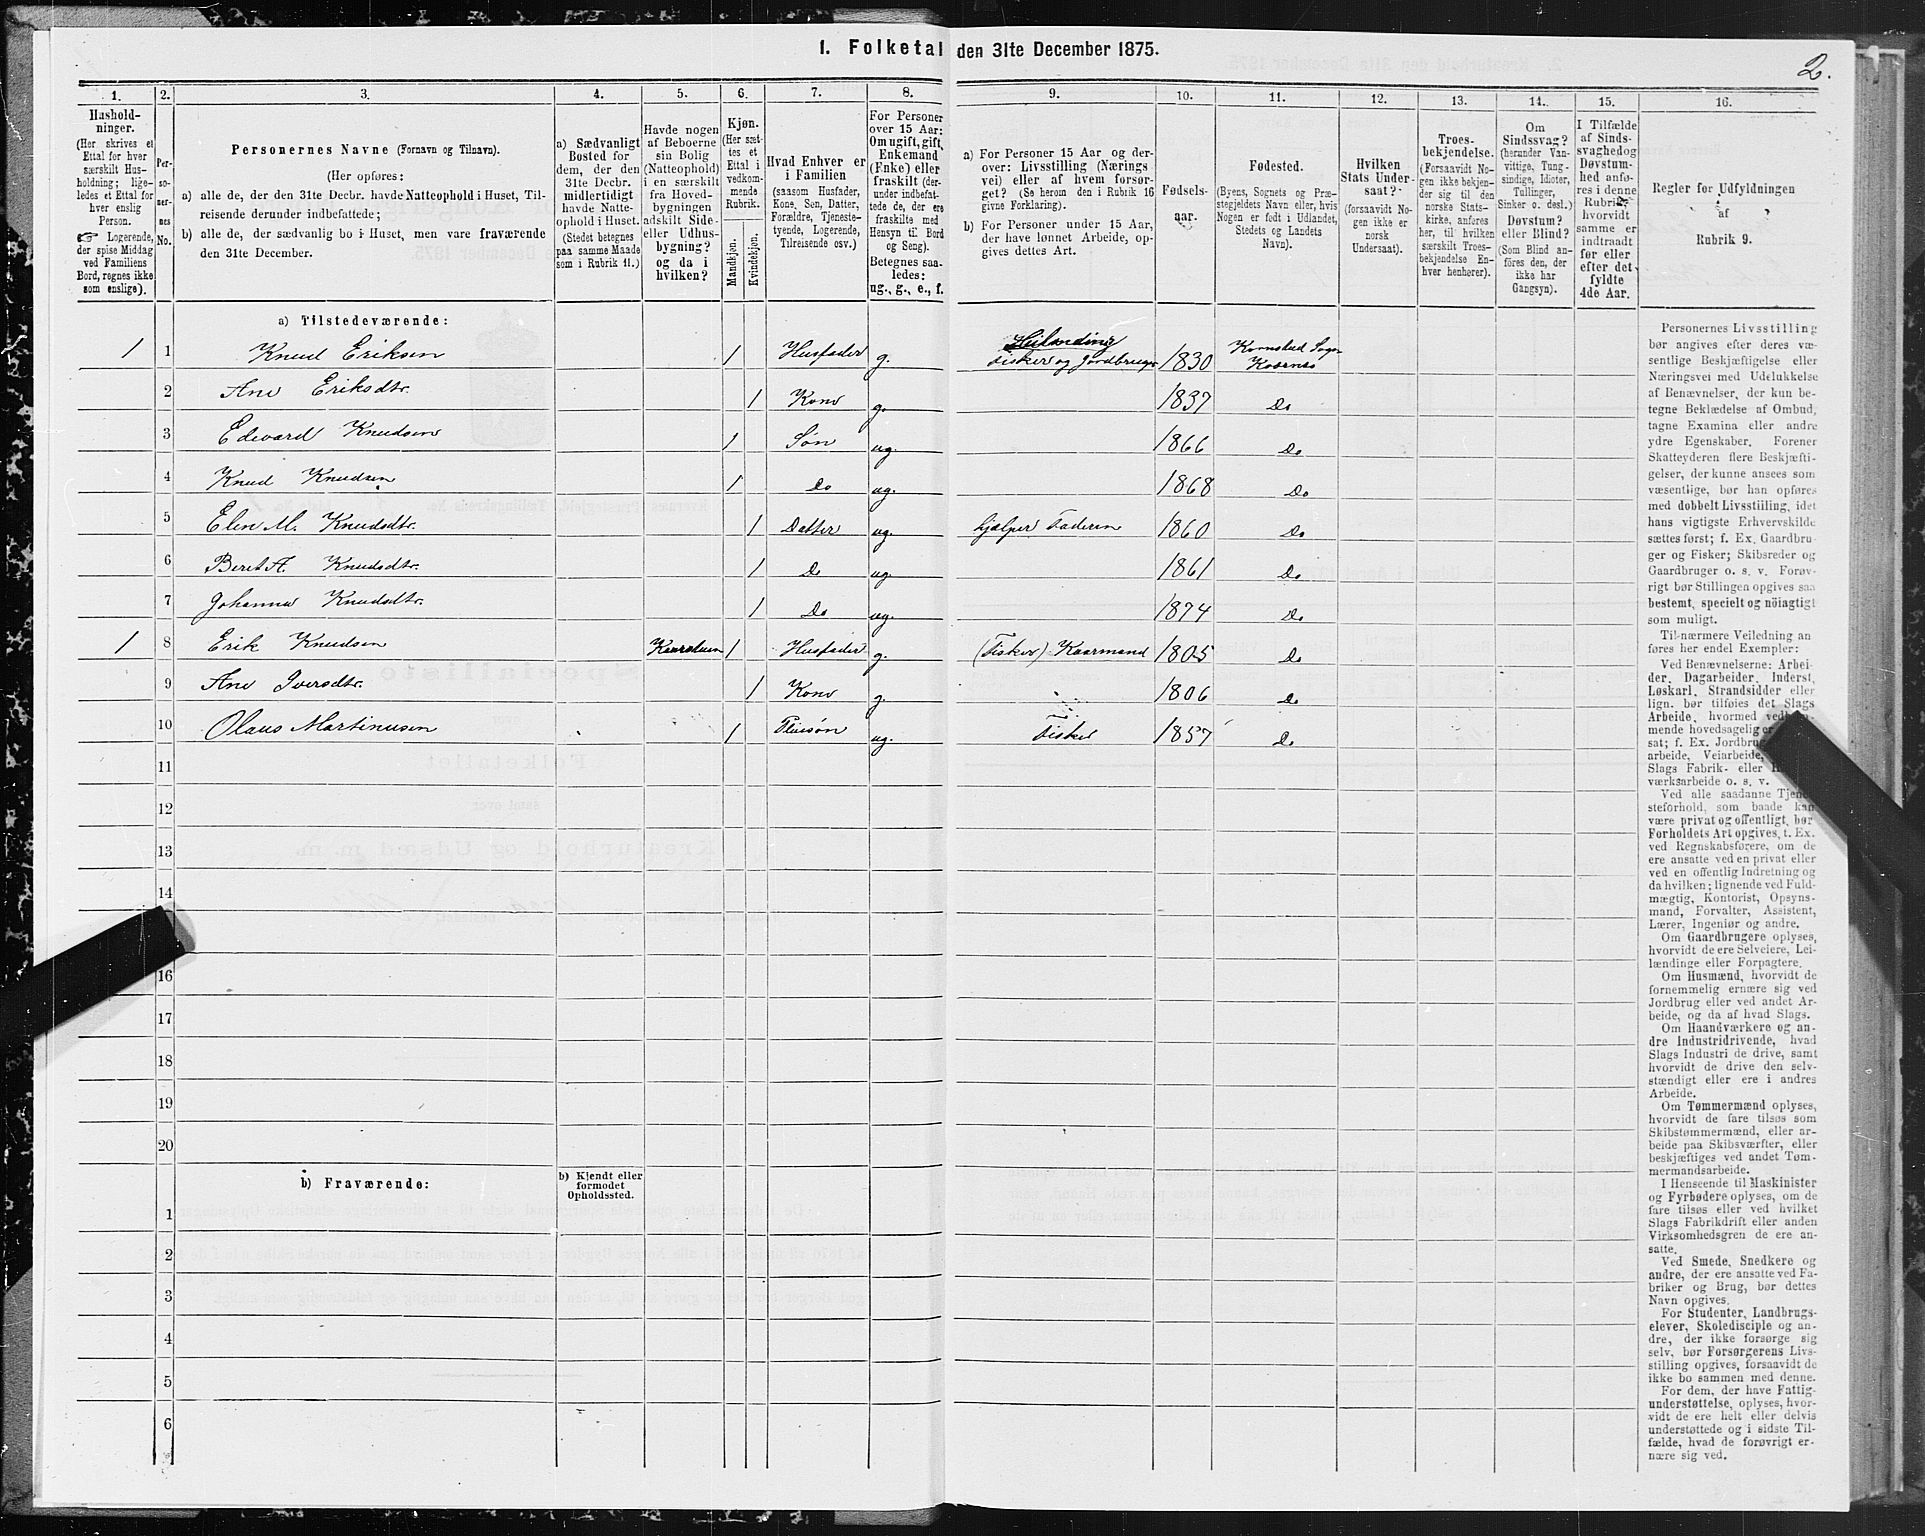 1. Folketal den 31te December 1875.
2.
1.
Hushold-
ninger.
(Her skrives et
Ettal for hver
særskilt Hus-
holdning; lige-
ledes et Ettal for
hver enslig
Person.
☞ Logerende,
der spise Middag
ved Familiens
Bord, regnes ikke
som enslige).
2.
Per-
so-
ner-
nes
No.
3.
Personernes Navne (Fornavn og Tilnavn).
(Her opføres:
a) alle de, der den 31te Decbr. havde Natteophold i Huset, Til-
reisende derunder indbefattede;
b) alle de, der sædvanlig bo i Huset, men vare fraværende
den 31te December.
4.
a) Sædvanligt
Bosted for
dem, der den
31te Decbr.
midlertidigt
havde Natte-
ophold i Huset.
(Stedet betegnes
paa samme Maade
som i Rubrik 11.)
5.
Havde nogen
af Beboerne
sin Bolig
(Natteophold)
i en særskilt
fra Hoved-
bygningen
adskilt Side-
eller Udhus-
bygning?
og da i
hvilken?
6.
Kjøn.
(Her sæt-
tes et
Ettal i
vedkom-
mende
Rubrik.
Mandkjøn.
Kvindekjøn.
7.
Hvad Enhver er
i Familien
(saasom Husfader,
Kone, Søn, Datter,
Forældre, Tjeneste-
tyende, Logerende,
Tilreisende osv.)
8.
For Personer
over 15 Aar:
Om ugift, gift,
Enkemand
(Enke) eller
fraskilt (der-
under indbefat-
tede de, der ere
fraskilte med
Hensyn til Bord
og Seng).
Betegnes saa-
ledes:
ug., g., e., f.
9.
a) For Personer 15 Aar og der-
over: Livsstilling (Nærings
vei) eller af hvem forsør-
get? (Se herom den i Rubrik 16
givne Forklaring).
b) For Personer under 15 Aar,
der have lønnet Arbeide, op-
gives dettes Art.
10.
Fødsels-
aar.
11.
Fødested.
(Byens, Sognets og Præ-
stegjeldets Navn eller, hvis
Nogen er født i Udlandet,
Stedets og Landets
Navn).
12.
Hvilken
Stats Under-
saat?
(forsaavidt No-
gen ikke er
norsk
Undersaat).
13.
Troes-
bekjendelse.
(Forsaavidt No-
gen ikke bekjen-
der sig til den
norske Stats-
kirke, anføres
her, til hvilken
særskilt Troes-
bekjendelse En-
hver henhører).
14.
Om
Sindssvag?
(herunder Van-
vittige, Tung-
sindige, Idioter,
Tullinger,
Sinker o. desl.)
Døvstum?
eller Blind?
(Som Blind an-
føres den, der
ikke har
Gangsyn).
15.
I Tilfælde
af Sinds-
svaghed og
Døvstum-
hed anfø-
res i denne
Rubrik,
hvorvidt
samme er
indtraadt
før eller
efter det
fyldte
4de Aar.
16.
Regler for Udfyldningen
af
Rubrik 9.
a) Tilstedeværende:
1 1 Knud Eriksen 1 Husfader g. Fisker og Jordbruger 1830 Kornstad Sogn
Kværnæs
2 Ane Eriksdtr. 1 Kone g. 1837 Do
3 Edevard Knudsen 1 Søn ug. 1866 Do
4 Knud Knudsen 1 Do ug. 1868 Do
5 Elen M. Knudsdtr. 1 Datter ug. hjælper Faderen 1860 Do
6 Beret A. Knudsdtr. 1 Do ug. 1861 Do
7 Johanna Knudsdtr. 1 Do ug. 1874 Do
1 8 Erik Knudsen Kaarstuen 1 Husfader g. (Fisker) Kaarmand 1805 Do
9 Ane Iversdtr. 1 Kone g. 1806 Do
10 Olaus Martinusen 1 Pleiesøn ug. Fisker 1857 Do
11
12
13
14
16
17
18
19
20
b) Fraværende:
b) Kjendt eller
formodet
Opholdssted.
1
2
3
4
5
6
Personernes Livsstilling
bør angives efter deres væ-
sentlige Beskjæftigelse eller
Næringsvei med Udelukkelse
af Benævnelser, der kun be-
tegne Beklædelse af Ombud,
tagne Examina eller andre
ydre Egenskaber. Forener
Skatteyderen flere Beskjæfti-
gelser, der kunne ansees som
væsentlige, bør han opføres
med dobbelt Livsstilling, idet
hans vigtigste Erhvervskilde
sættes først; f. Ex. Gaardbru-
ger og Fisker; Skibsreder og
Gaardbruger o. s. v. Forøv-
rigt bør Stillingen opgives saa
bestemt, specielt og nöiagtigt
som muligt.
Til nærmere Veiledning an
føres her endel Exempler:
Ved Benævnelserne: Arbei-
der, Dagarbeider, Inderst,
Løskarl, Strandsidder eller
lign. bør tilføies det Slags
Arbeide, hvormed
mende hovedsagelig er
sat; f. Ex. Jordbrug
arbeide, Veiarbeide,
Slags Fabrik- eller
værksarbeide o. s. v.
Ved alle saadanne Tjene-
steforhold, som baade kan
være privat og offentligt, bør
Forholdets Art opgives, t. Ex.
ved Regnskabsførere, om de
ere ansatte ved en privat eller
ved en offentlig Indretning og
da hvilken; lignende ved Fuld-
mægtig, Kontorist, Opsyns-
mand, Forvalter, Assistent,
Lærer, Ingeniør og andre.
Om Gaardbrugere oplyses,
hvorvidt de ere Selveiere, Lei-
lændinge eller Forpagtere.
Om Husmænd, hvorvidt de
fornemmelig ernære sig ved
Jordbrug eller ved andet Ar-
beide, og da af hvad Slags.
Om Haandværkere og an-
dre Industridrivende, hvad
Slags Industri de drive, samt
hvorvidt de drive den selv-
stændigt eller ere i andres
Arbeide.
Om Tømmermænd oplyses,
hvorvidt de fare tilsøs som
Skibstømmermænd, eller ar-
beide paa Skibsværfter, eller
beskjæftiges ved andet Tøm-
mermandsarbeide.
I Henseende til Maskinister
og Fyrbødere oplyses, om de
fare tilsøs eller ved hvilket
Slags Fabrikdrift eller anden
Virksomhedsgren de ere an-
satte.
Ved Smede, Snedkere og
andre, der ere ansatte ved Fa-
briker og Brug, bør dettes
Navn opgives.
For Studenter, Landbrugs-
elever, Skoledisciple og an-
dre, der ikke forsørge sig
selv, bør Forsørgerens Livs-
stilling opgives, forsaavidt de
ikke bo sammen med denne.
For dem, der have Fattig-
understøttelse, oplyses, hvor-
vidt de ere helt eller delvis
understøttede og i sidste Til-
fælde, hvad de forøvrigt er-
nære sig ved.